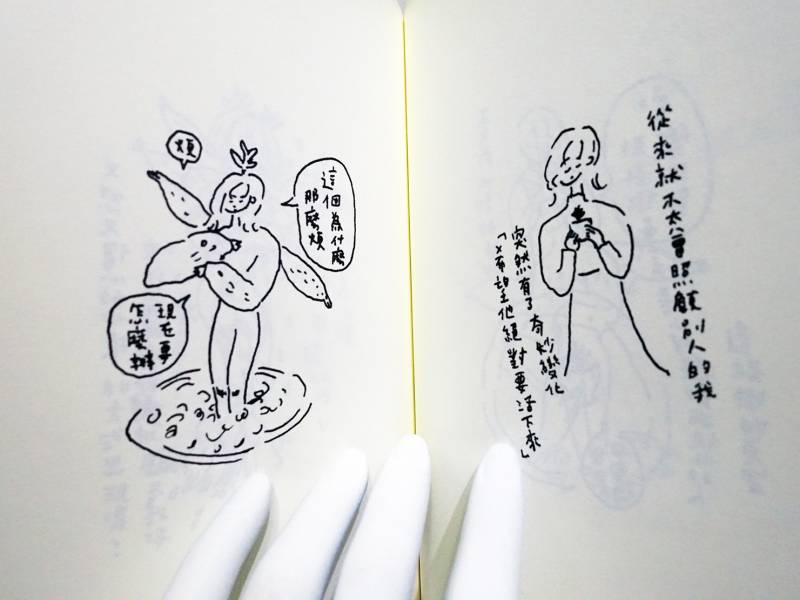 從來就不太會照顧別人的我
突然有了奇妙變化
「希望他絕對要活下來」
煩
這個為什麼
那麼煩
現在要
怎麼辦